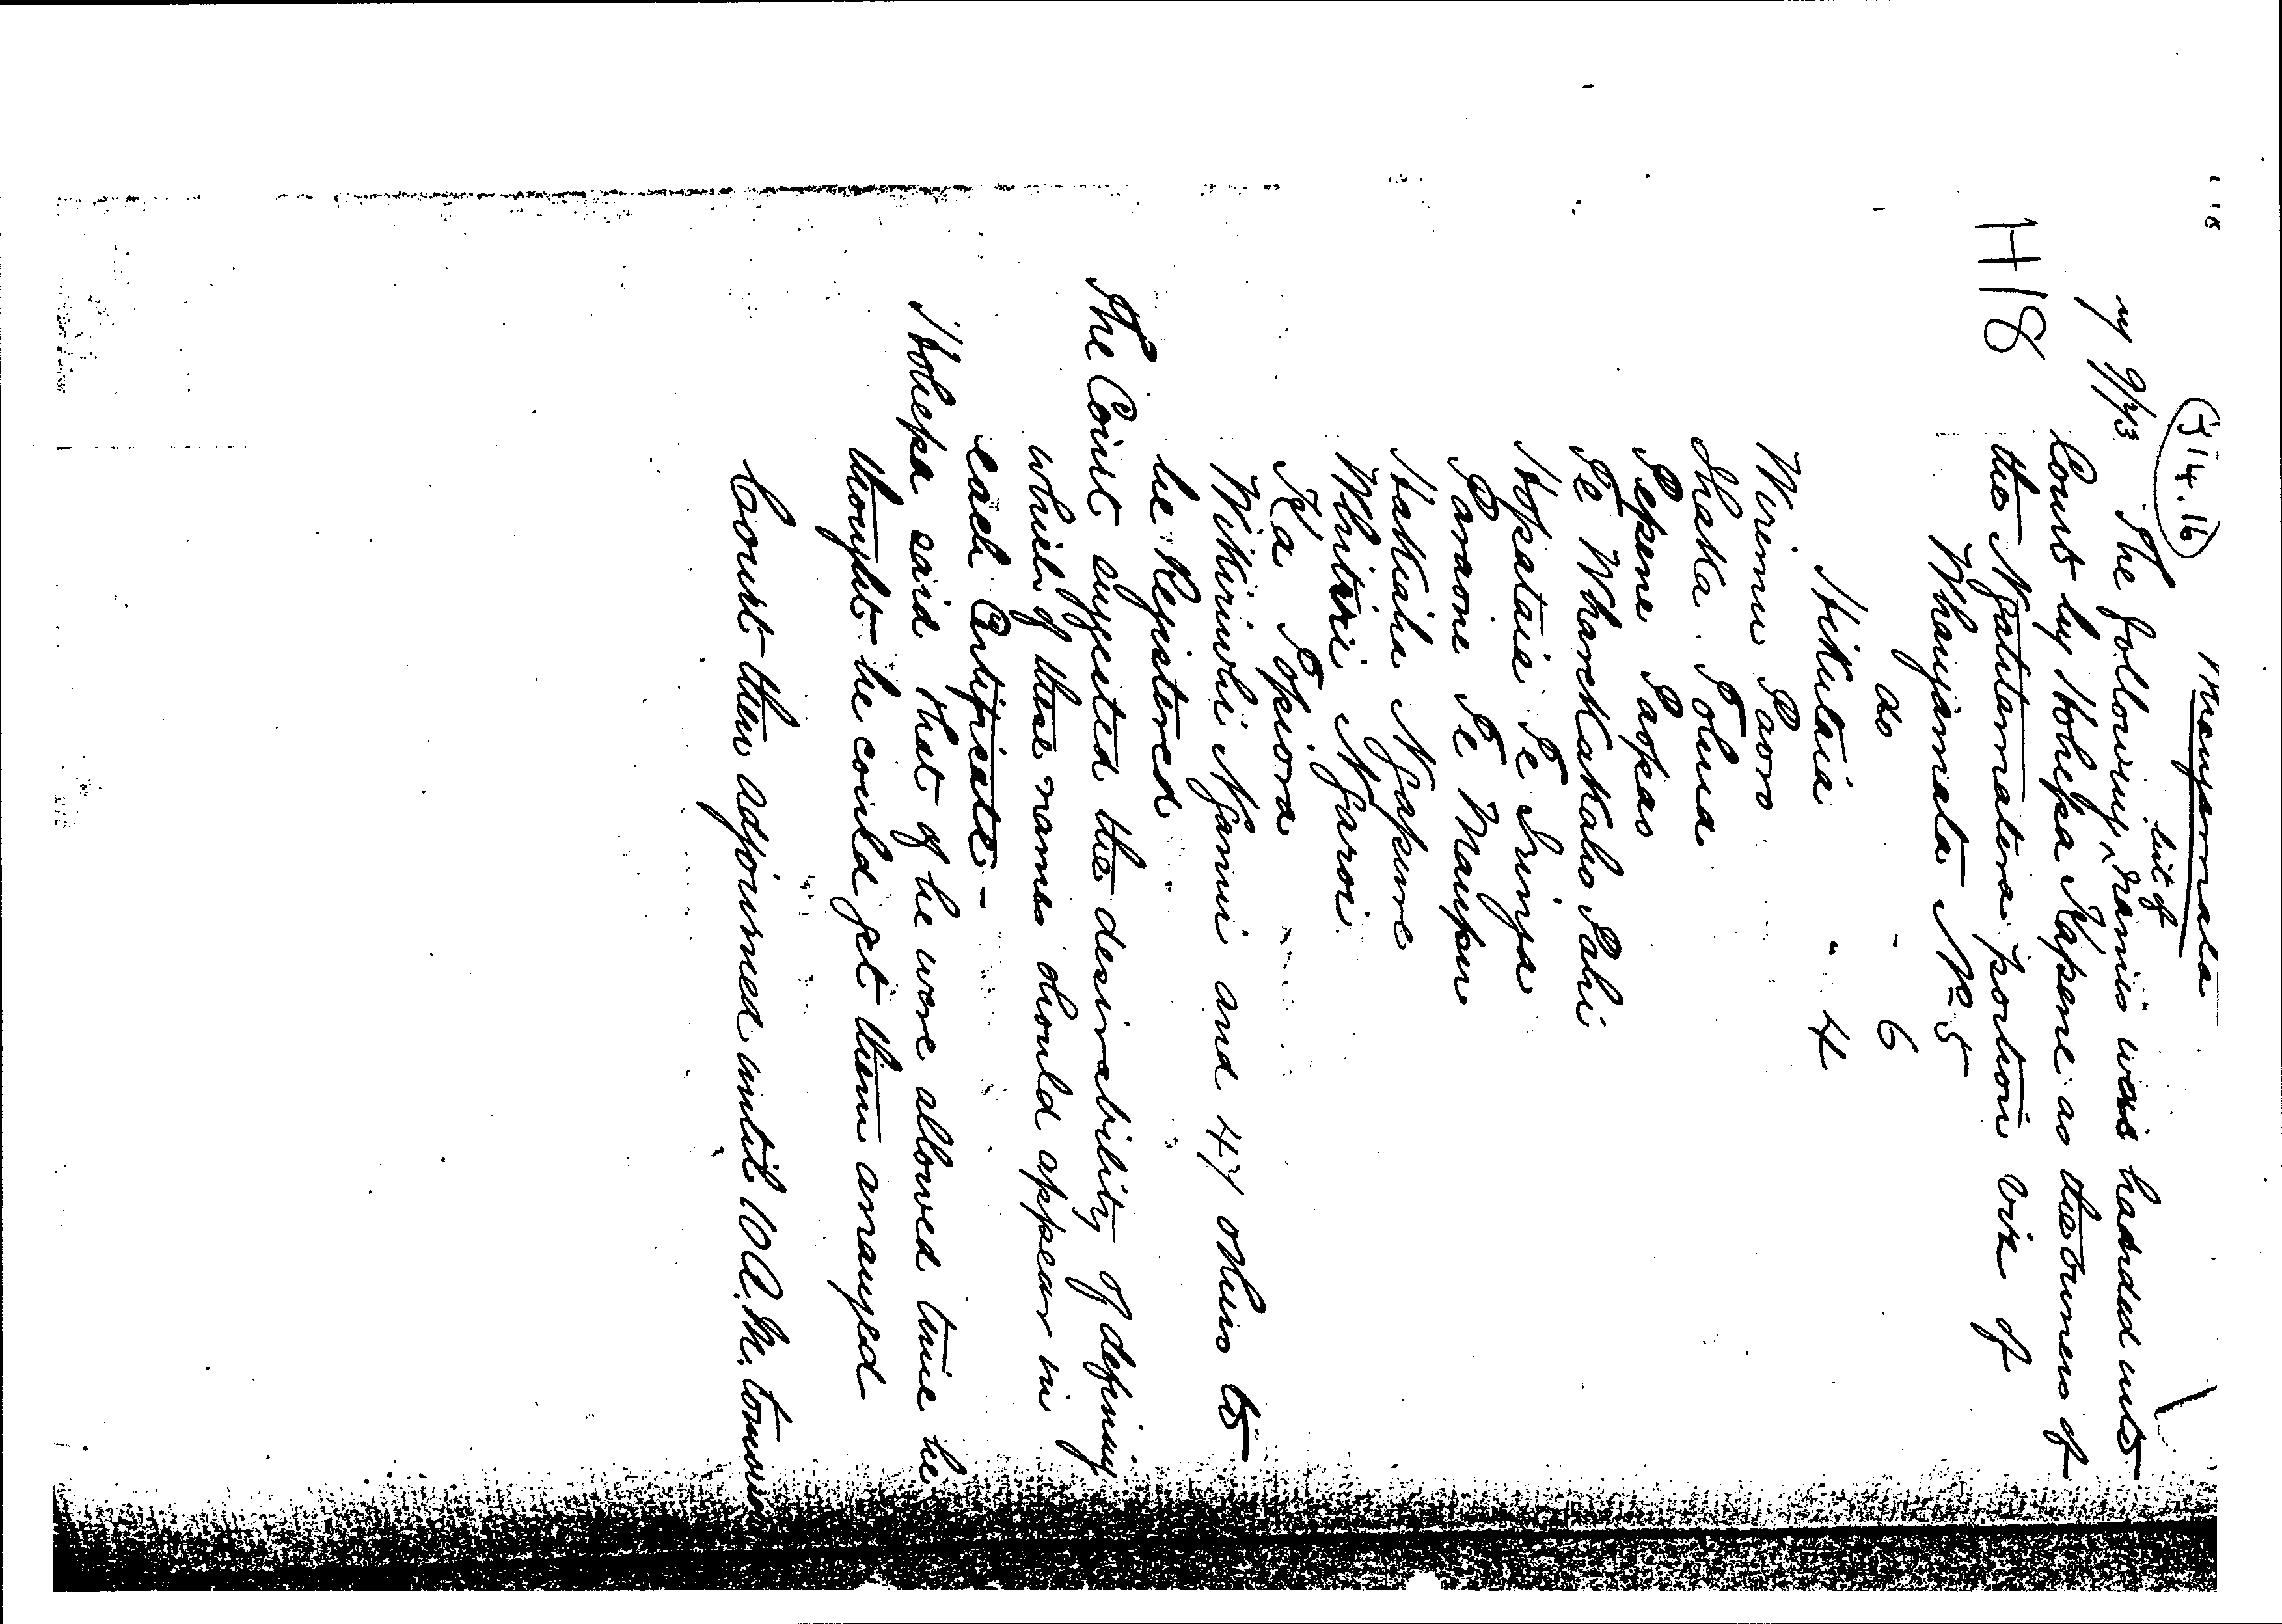 J 14.16
Maungamata
my 9/73 The following list of names was handed into
H18 Court by Hohepa Kapene as the owners of
the Ngatitamatera portion viz of
Whangamata No 5
do - 6
Hikutaia " 4
Wirimu Paoro
Ihaka Pohua
Pepene Paopao
Te Wharekakaho Pahi
Hopataia Te Iringa
Paraone Te Maupu
Hakiaha Ngapure
Whitiri Ngaroi
Ka Topiora
Wikiriwhi Ngamu and 47 others to
be Registered
The Court suggested the desirability of defining
which of these names should appear in
each Certificate -
Hohepa said that if he were allowed time he
thought he could get them arranged
Court then adjourned until 10 A.M. tomorrow